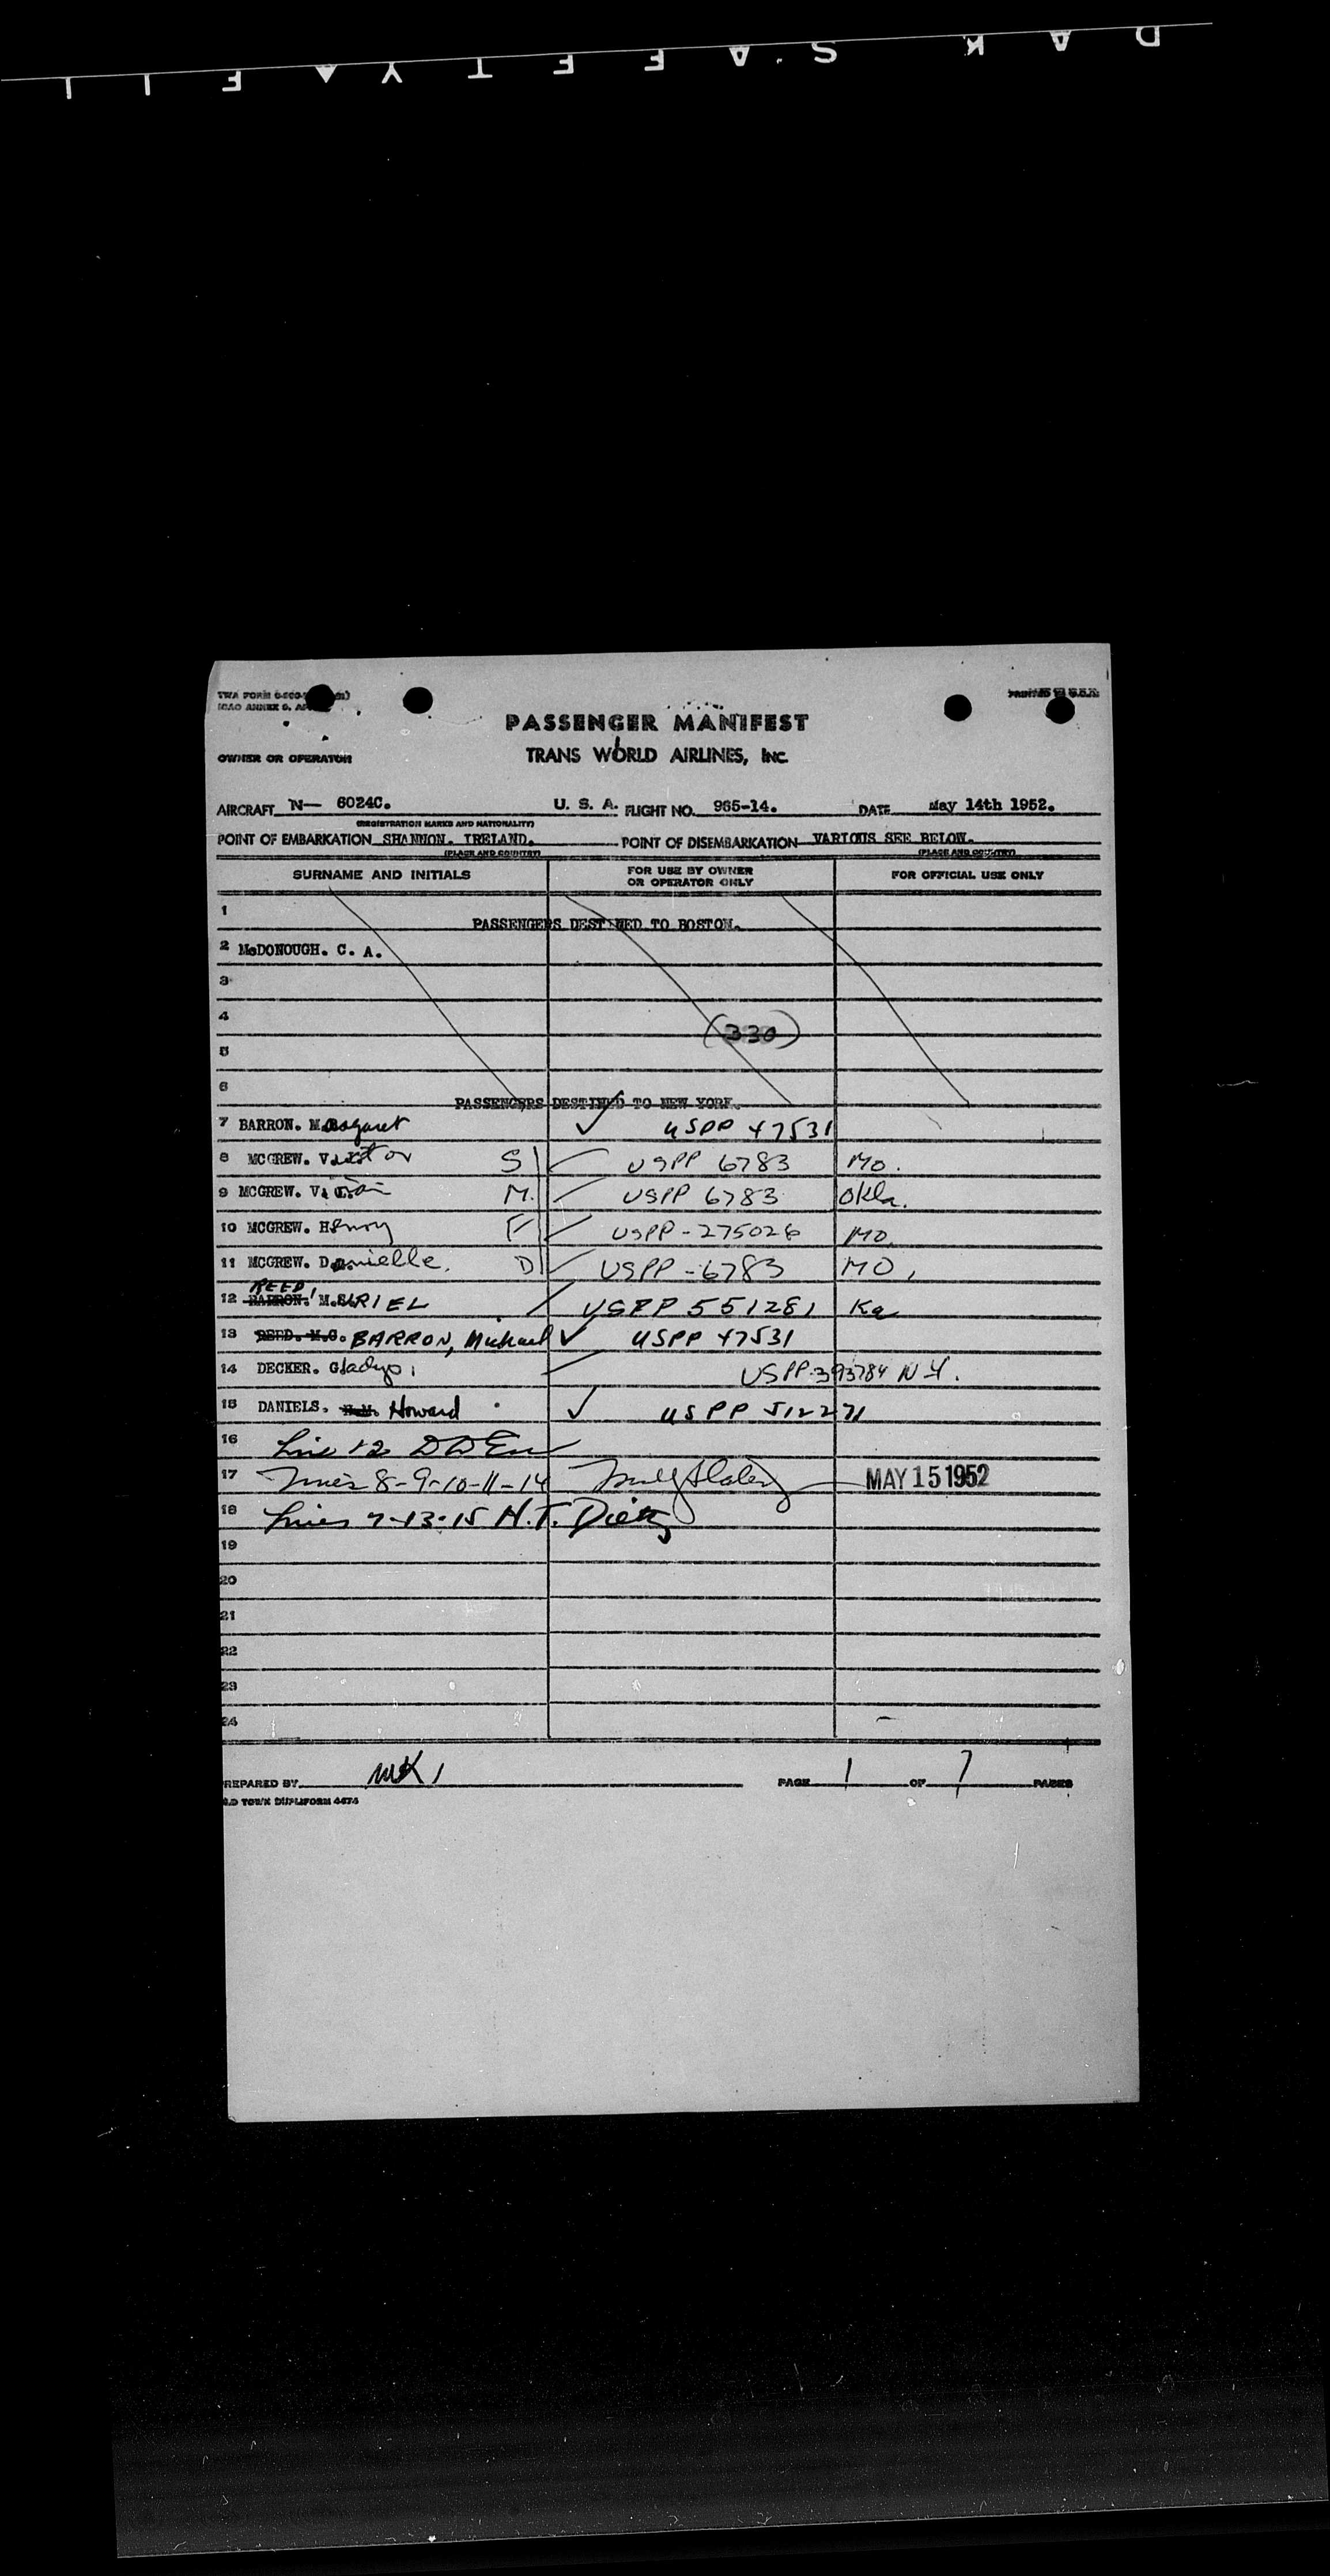 PASSENGER MANIFEST
OWNER OR OPERATOR TRANS WORLD AIRLINES, INC.
AIRCRAFT N— 6024C. U. S. A. FLIGHT NO. 965-14. DATE May 14th 1952.
(REGISTRATION MARKS AND NATIONALITY)
POINT OF EMBARKATION SHANNON. IRELAND. POINT OF DISEMBARKATION VARIOUS SEE BELOW.
(PLACE AND COUNTRY) (PLACE AND COUNTRY)
SURNAME AND INITIALS FOR USE BY OWNER OR OPERATOR ONLY FOR OFFICIAL USE ONLY
1 PASSENGERS DESTINED TO BOSTON.
2 McDONOUGH. C. A.
3
4 (330)
5
6 PASSENGERS DESTINED TO NEW YORK.
7 BARRON. Margaret ✓ USPP 47531
8 MCGREW. Victor S USPP 6783 Mo.
9 MCGREW. M. USPP 6783 Okla.
10 MCGREW. Henry F USPP-275026 Mo.
11 MCGREW. Danielle. D USPP-6783 MO.
12 REED BARRON. MURIEL USPP 551281 Ka
13 REED. M.G. BARRON, Michael ✓ USPP 47531
14 DECKER. Gladys. USPP-393784 N.Y.
15 DANIELS. Howard ✓ USPP 512271
16 Line 12
17 Lines 8-9-10-11-14 MAY 15 1952
18 Lines 7-13-15 H.T. Dietz
19
20
21
22
23
24
PREPARED BY MK PAGE 1 OF 7 PAGES